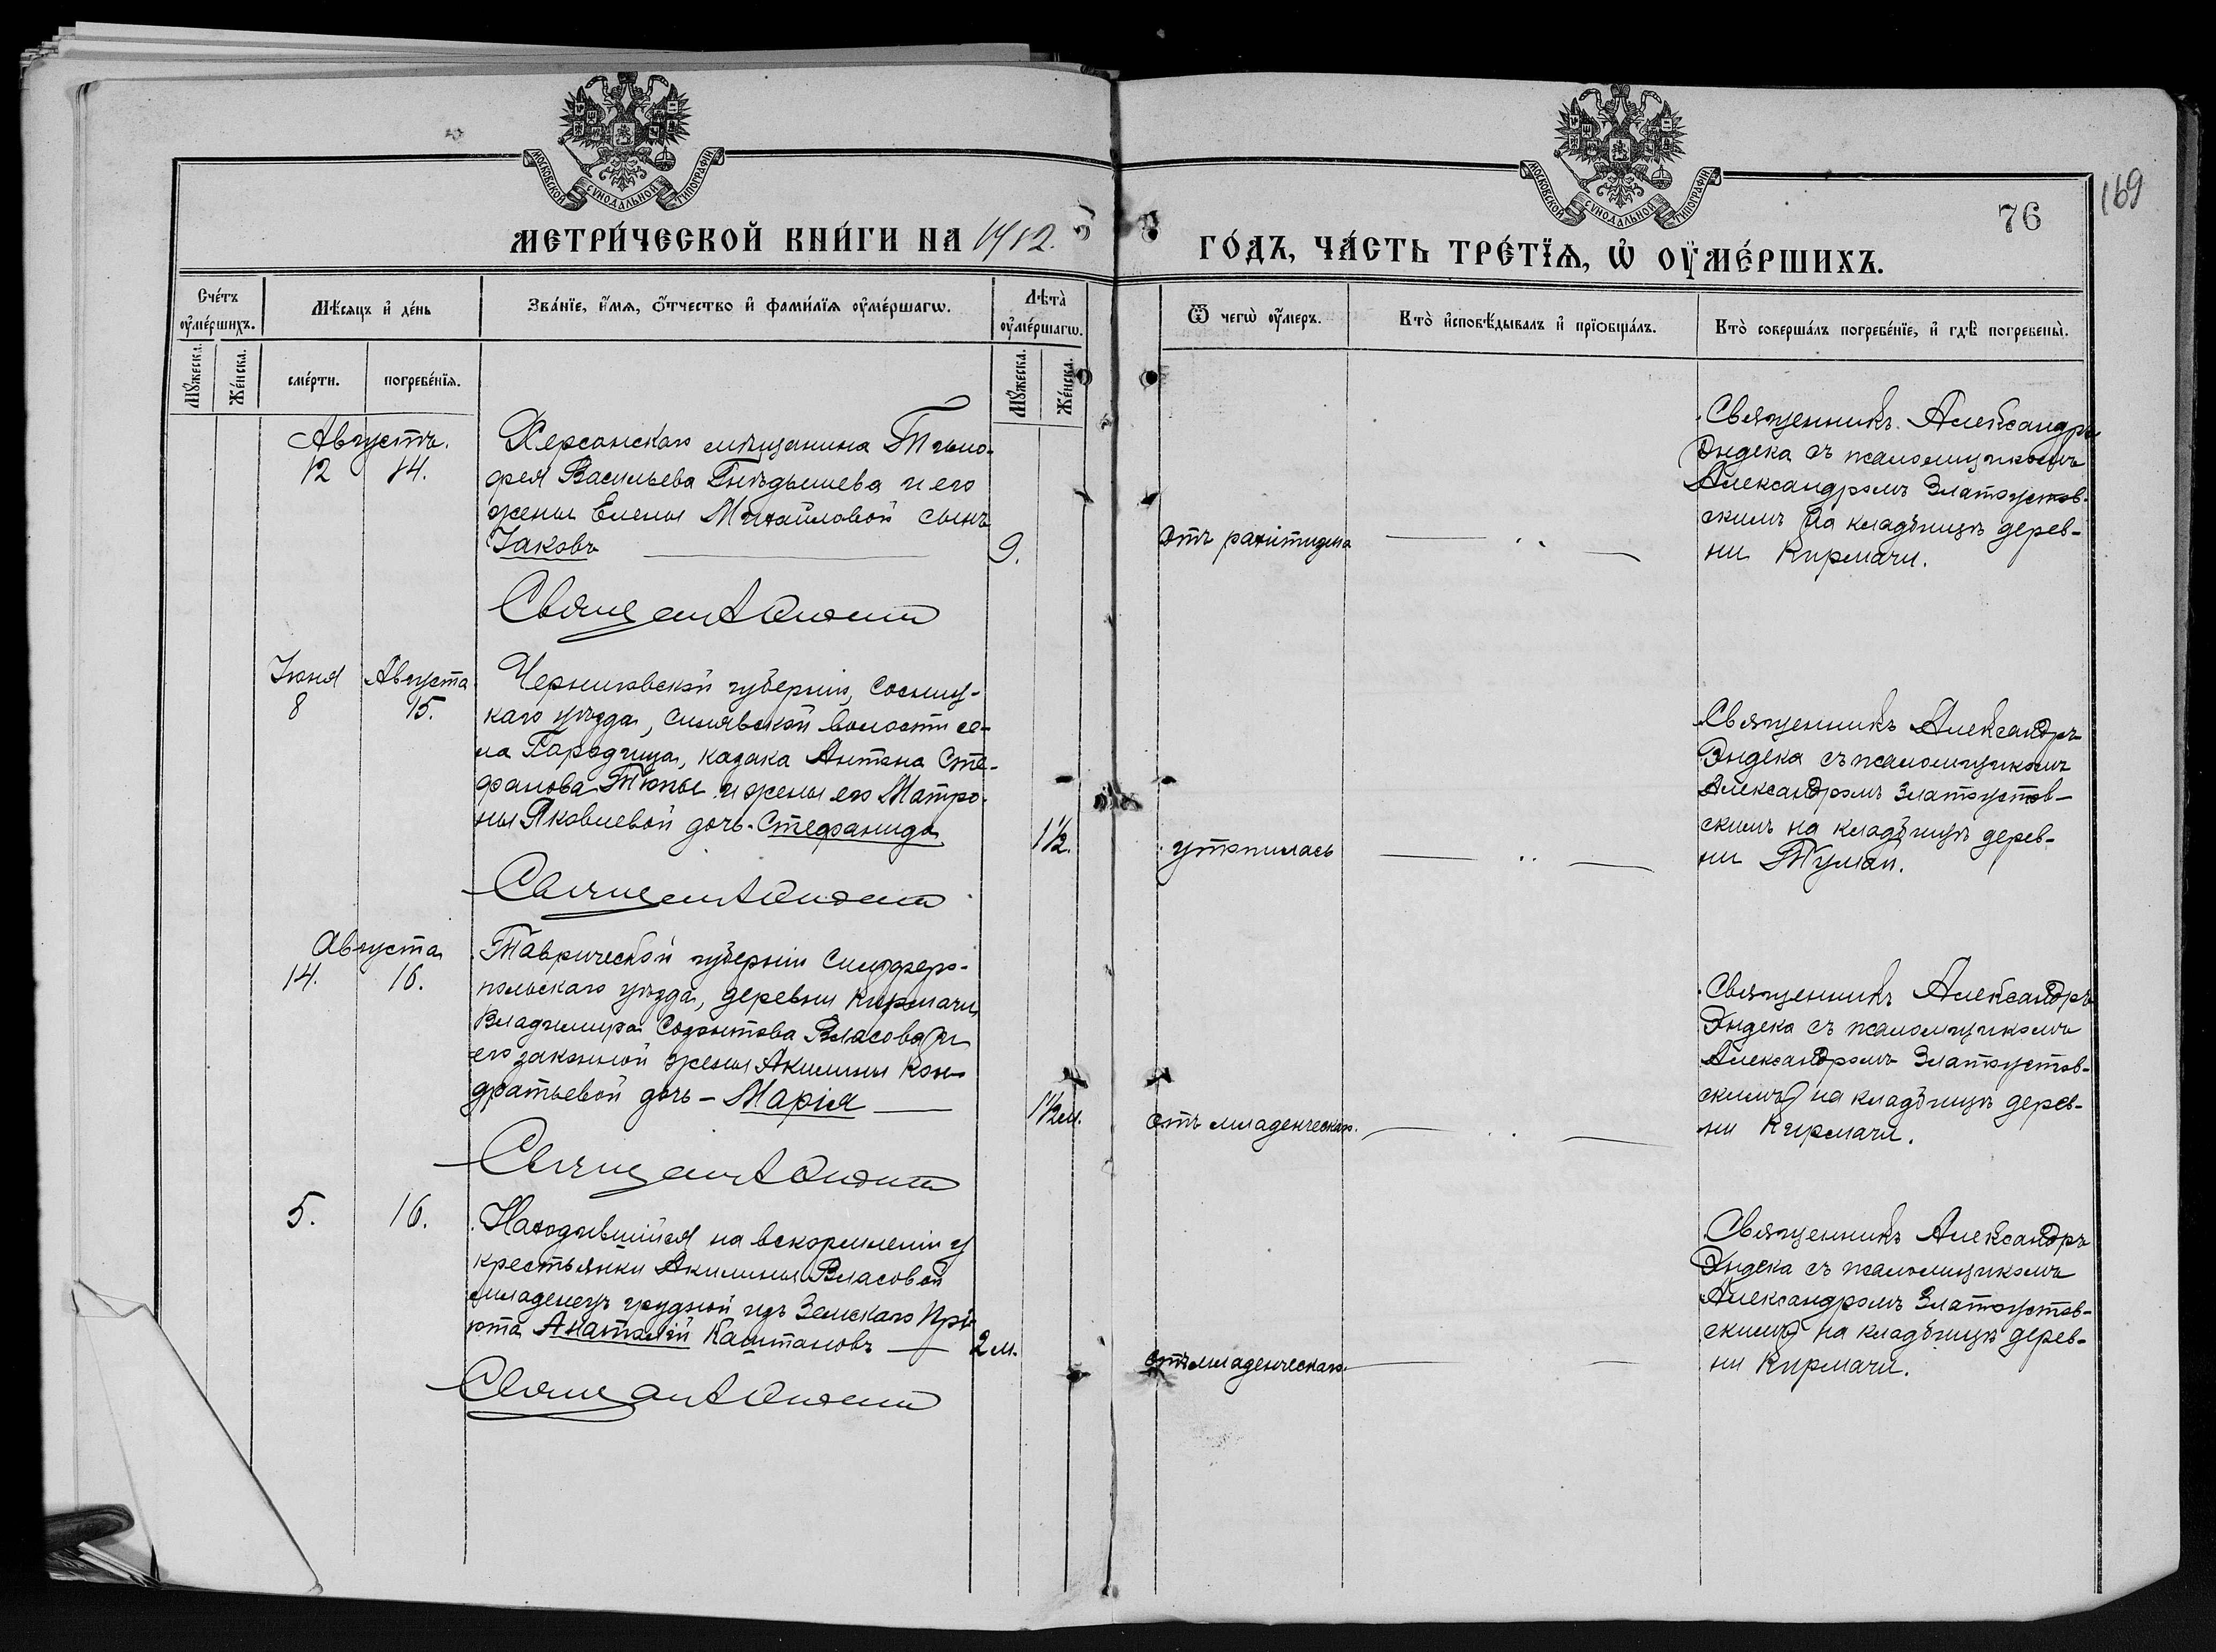 МОСКОВСКОЙ СѴНОДАЛЬНОЙ ТИПОГРАФІИ
МОСКОВСКОЙ СѴНОДАЛЬНОЙ ТИПОГРАФІИ
169
76
МЕТРИ́ЧЕСКОЙ КНИ́ГИ НА 1912.
ГО́ДЪ, ЧА́СТЬ ТРЕ́ТЇѦ, Ѡ҆ ОУ҆МЕ́РШИХЪ.
Сче́тъ оу҆ме́ршихъ.
Мѣ́сяцъ и҆ де́нь
Зва́нїе, и҆́мѧ, ѻ҆́тчество и҆ фами́лїѧ оу҆ме́ршагѡ.
Лѣта̀ оу҆ме́ршагѡ.
Ѿ чегѡ̀ оу҆́меръ.
Кто̀ и҆сповѣ́дывалъ и҆ прїѻбща́лъ.
Кто̀ соверша́лъ погребе́нїе, и҆ гдѣ̀ погребены̀.
Мꙋ́жеска.
Же́нска.
сме́рти.
погребе́нїѧ.
Мꙋ́жеска.
Же́нска.
Августъ.
12 14.
Херсонскаго мѣщанина Тимо-
фея Васильева Гнѣдышева и его
жены Елены Михайловой сынъ
Іаковъ
9.
отъ рахитизма
Священникъ Александръ
Эндека съ псаломщикомъ
Александромъ Златоустов-
скимъ на кладбищѣ дерев-
ни Кирмачи.
Іюня Августа
8 15.
Черниговской губерніи, Сосниц-
каго уѣзда, Синявской волости се-
ла Городища, казака Антона Сте-
фанова Тюпы и жены его Матро-
ны Яковлевой дочь-Стефанида
1 1/2.
утопилась
Священникъ Александръ
Эндека съ псаломщикомъ
Александромъ Златоустов-
скимъ на кладбищѣ дерев-
ни Тумай.
Августа
14. 16.
Таврической губерніи Симферо-
польскаго уѣзда, деревни Кирмачи,
Владимира Созонтова Власова и
его законной жены Акилины Кон-
дратьевой дочь - Марія
1 1/2 м.
отъ младенческаго.
Священникъ Александръ
Эндека съ псаломщикомъ
Александромъ Златоустов-
скимъ на кладбищѣ дерев-
ни Кирмачи.
5. 16.
Находившійся на вскормленіи у
крестьянки Акилины Власовой
младенецъ грудной изъ Земскаго Прі-
юта Анатолій Каштановъ
2 м.
отъ младенческаго.
Священникъ Александръ
Эндека съ псаломщикомъ
Александромъ Златоустов-
скимъ на кладбищѣ дерев-
ни Кирмачи.